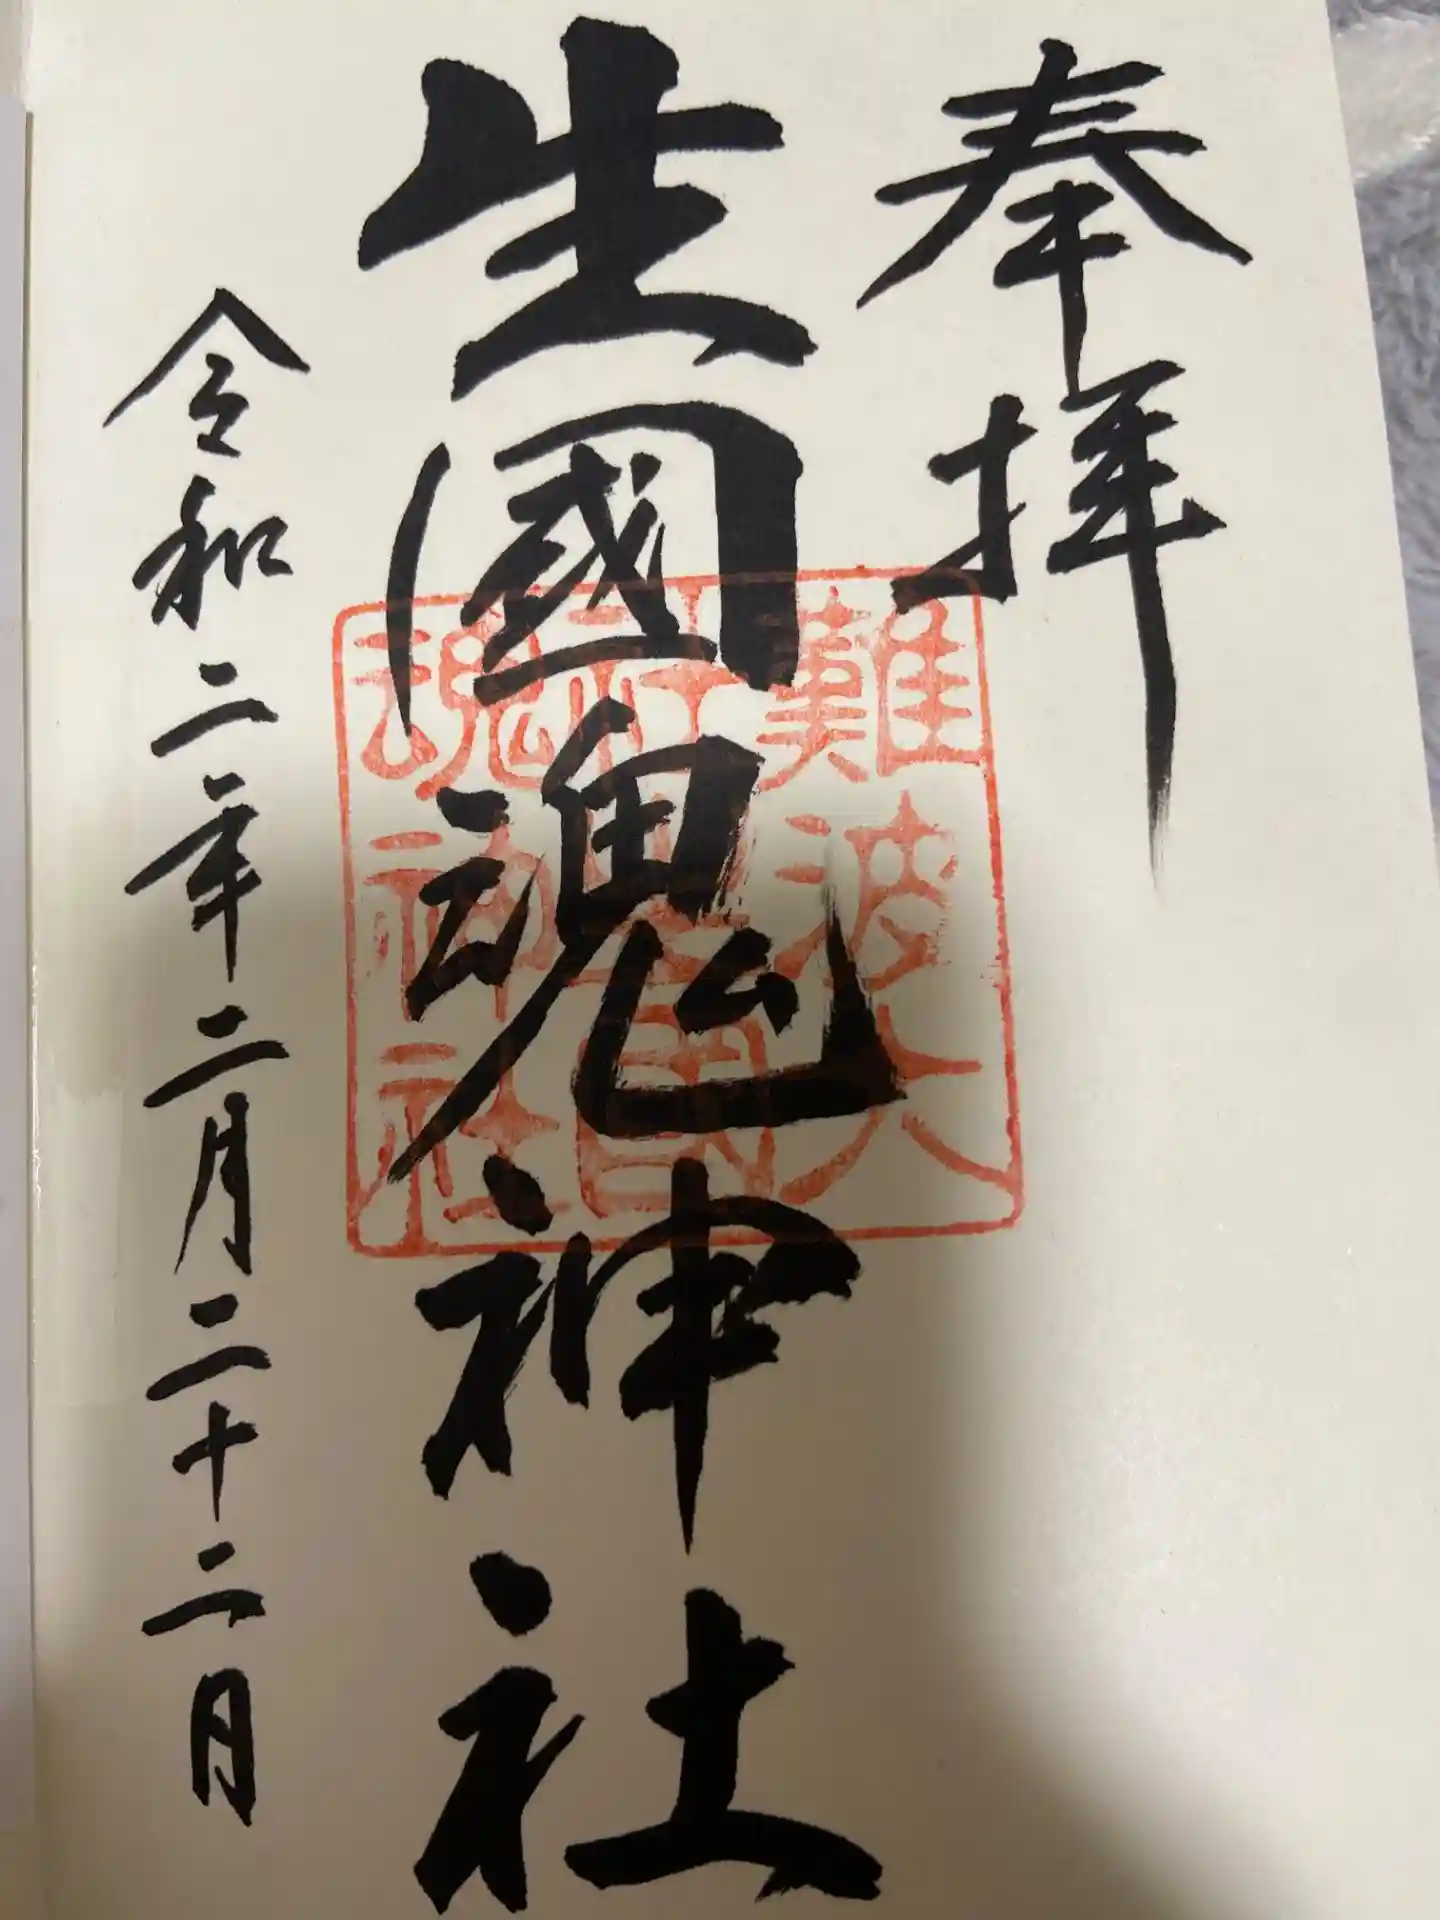 奉拝
生國魂神社
令和二年二月二十二日
難波大
社生國
魂神社